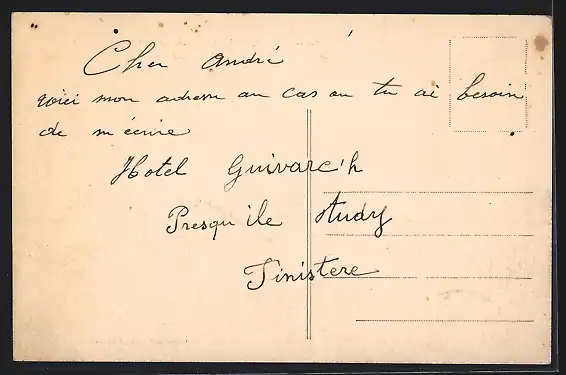 Cher André
voici mon adresse au cas ou tu ai besoin
de m'écrire
Hotel Guivarc'h
Presqu'ile Audy
Finistere